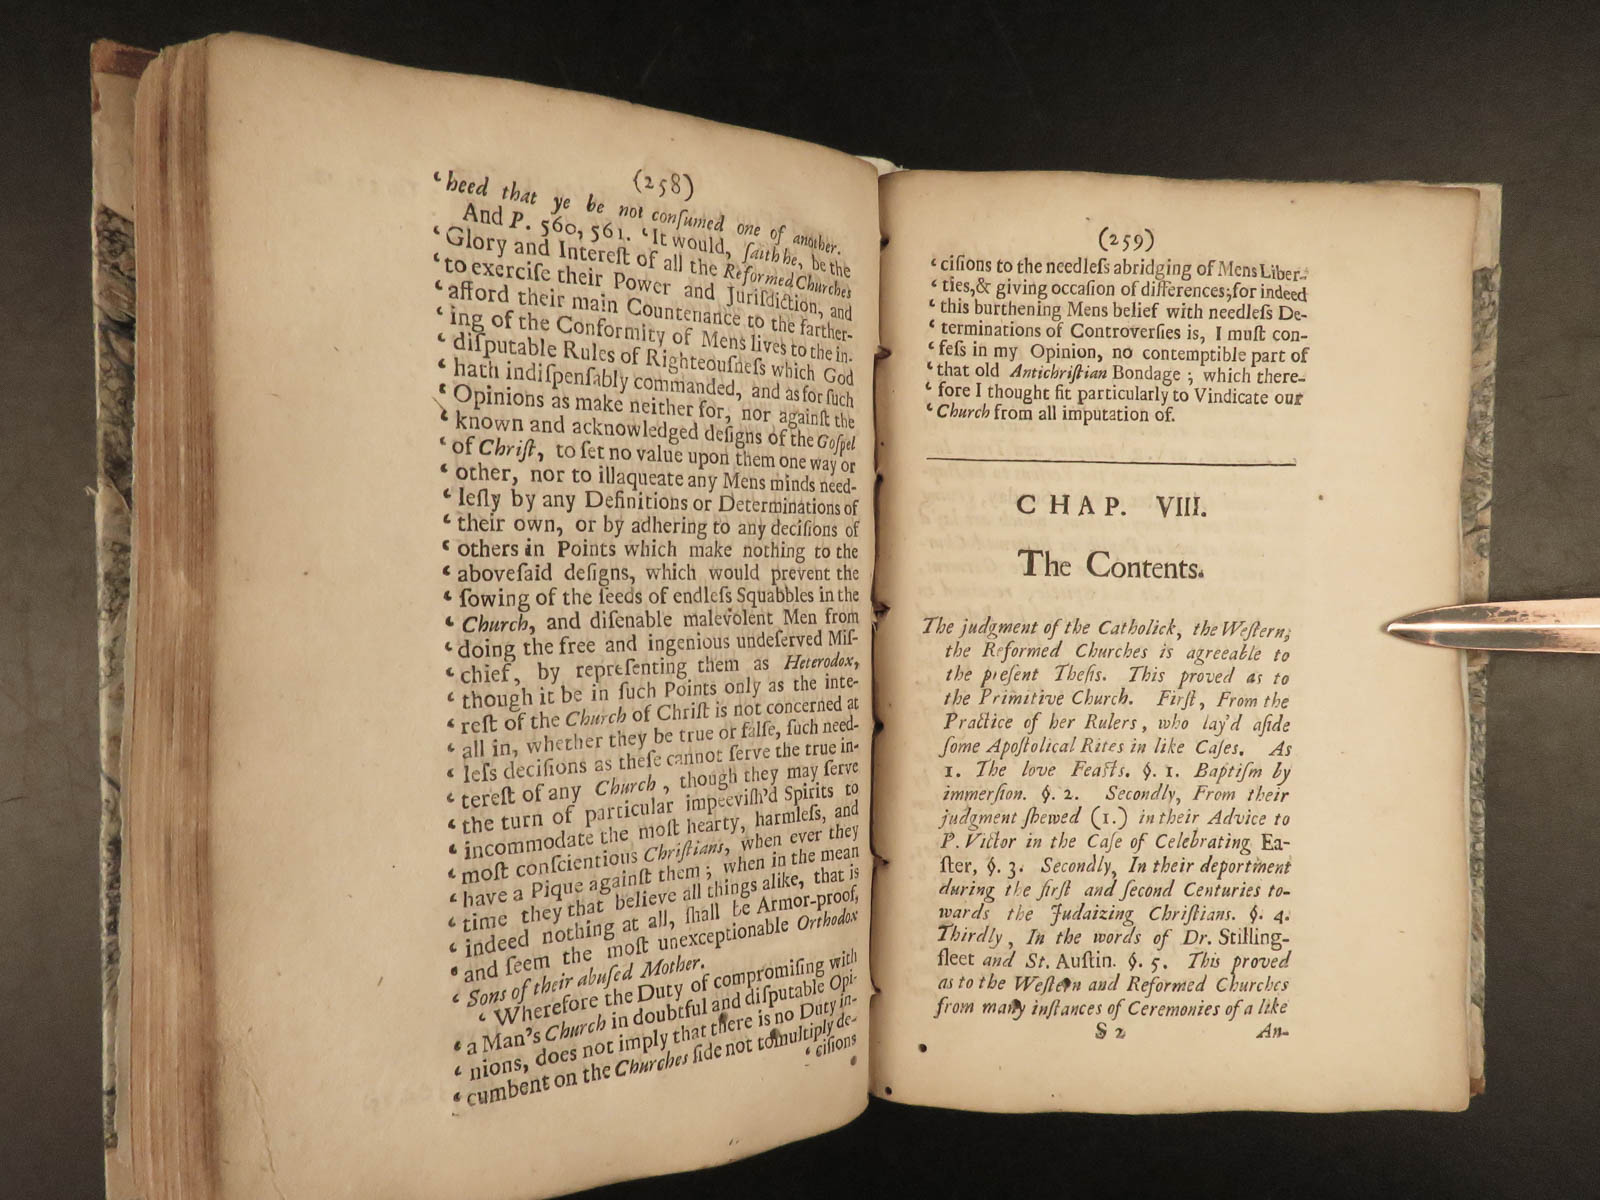 (258)
‘ heed that ye be not conſumed one of another.
And P. 560, 561. ‘ It would, ſaith he, be the
‘ Glory and Intereſt of all the Reformed Churches
‘ to exerciſe their Power and Juriſdiction, and
‘ afford their main Countenance to the farther-
‘ ing of the Conformity of Mens lives to the in-
‘ diſputable Rules of Righteouſneſs which God
‘ hath indiſpenſably commanded, and as for ſuch
‘ Opinions as make neither for, nor againſt the
‘ known and acknowledged deſigns of the Goſpel
‘ of Chriſt, to ſet no value upon them one way or
‘ other, nor to illaqueate any Mens minds need-
‘ leſly by any Definitions or Determinations of
‘ their own, or by adhering to any deciſions of
‘ others in Points which make nothing to the
‘ aboveſaid deſigns, which would prevent the
‘ ſowing of the ſeeds of endleſs Squabbles in the
‘ Church, and diſenable malevolent Men from
‘ doing the free and ingenious undeſerved Miſ-
‘ chief, by repreſenting them as Heterodox,
‘ though it be in ſuch Points only as the inte-
‘ reſt of the Church of Chriſt is not concerned at
‘ all in, whether they be true or falſe, ſuch need-
‘ leſs deciſions as theſe cannot ſerve the true in-
‘ tereſt of any Church, though they may ſerve
‘ the turn of particular impeeviſh'd Spirits to
‘ incommodate the moſt hearty, harmleſs, and
‘ moſt conſcientious Chriſtians, when ever they
‘ have a Pique againſt them; when in the mean
‘ time they that believe all things alike, that is
‘ indeed nothing at all, ſhall be Armor-proof,
‘ and ſeem the moſt unexceptionable Orthodox
‘ Sons of their abuſed Mother.
‘ Wherefore the Duty of compromiſing with
‘ a Man's Church in doubtful and diſputable Opi-
‘ nions, does not imply that there is no Duty in-
‘ cumbent on the Churches ſide not to multiply de-
‘ ciſions
(259)
‘ ciſions to the needleſs abridging of Mens Liber-
‘ ties,& giving occaſion of differences; for indeed
‘ this burthening Mens belief with needleſs De-
‘ terminations of Controverſies is, I muſt con-
‘ feſs in my Opinion, no contemptible part of
‘ that old Antichriſtian Bondage; which there-
‘ fore I thought fit particularly to Vindicate our
‘ Church from all imputation of.
CHAP. VIII.
The Contents.
The judgment of the Catholick, the Weſtern,
the Reformed Churches is agreeable to
the preſent Theſis. This proved as to
the Primitive Church. Firſt, From the
Practice of her Rulers, who lay'd aſide
ſome Apoſtolical Rites in like Caſes. As
1. The love Feaſts. §. 1. Baptiſm by
immerſion. §. 2. Secondly, From their
judgment ſhewed (1.) in their Advice to
P. Victor in the Caſe of Celebrating Ea-
ſter, §. 3. Secondly, In their deportment
during the firſt and ſecond Centuries to-
wards the Judaizing Chriſtians. §. 4.
Thirdly, In the words of Dr. Stilling-
fleet and St. Auſtin. §. 5. This proved
as to the Weſtern and Reformed Churches
from many inſtances of Ceremonies of a like
S 2
An-